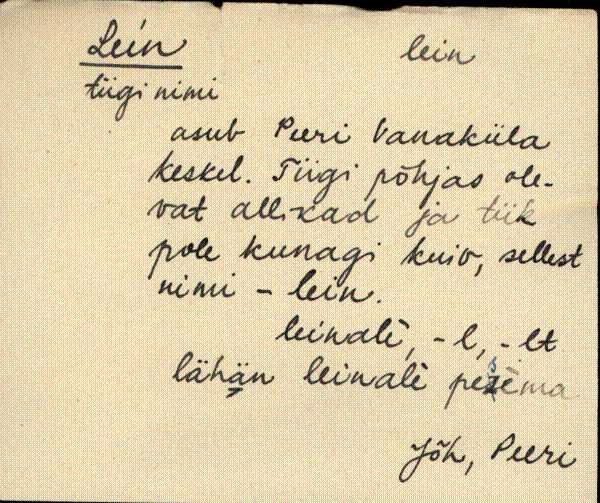 Lein lein
tiigi nimi
asub Peeri Vanaküla
keskel. Tiigi põhjas ole-
vat allikad ja tiik
pole kunagi kuiv, sellest
nimi – lein.
leinalè, -l, -lt
lähän leinalè pesèma
Jõh, Peeri